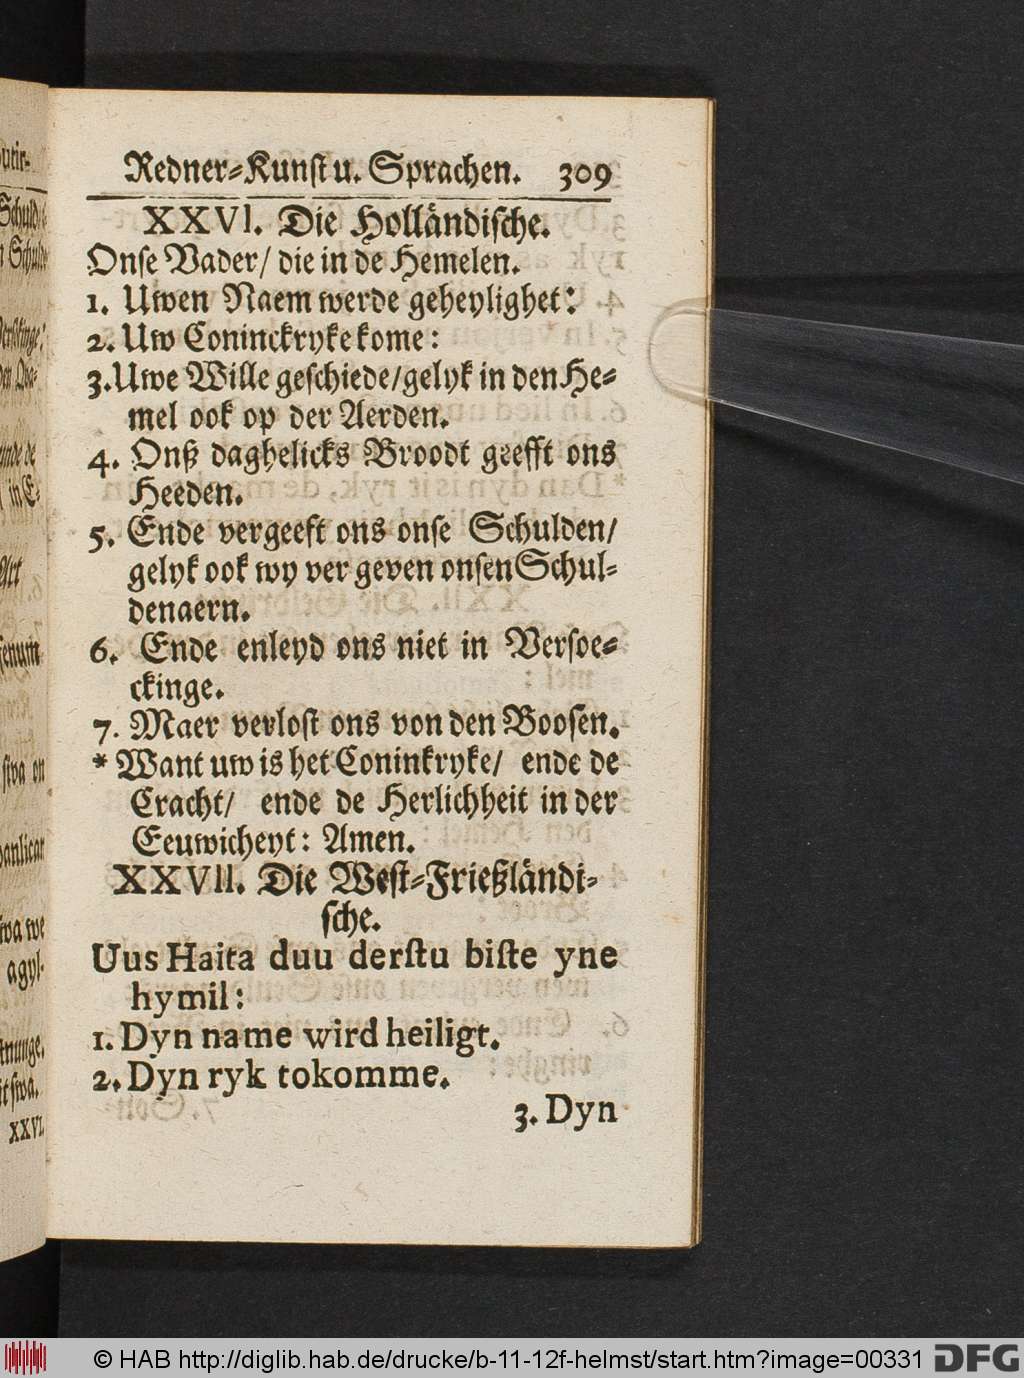 Redner-Kunst u. Sprachen. 309
XXVI. Die Holländische.
Onse Vader/ die in de Hemelen.
1. Uwen Naem werde geheylighet:
2. Uw Coninckryke kome:
3. Uwe Wille geschiede/gelyk in den He-
mel ook op der Aerden.
4. Onß daghelicks Broodt geefft ons
Heeden.
5. Ende vergeeft ons onse Schulden/
gelyk ook wy ver geven onsen Schul-
denaern.
6. Ende enleyd ons niet in Versoe-
ckinge.
7. Maer verlost ons von den Boosen.
* Want uw is het Coninkryke/ ende de
Cracht/ ende de Herlichheit in der
Eeuwicheyt: Amen.
XXVII. Die West-Frießländi-
sche.
Uus Haita duu derstu biste yne
hymil:
1. Dyn name wird heiligt.
2. Dyn ryk tokomme.
3. Dyn
© HAB http://diglib.hab.de/drucke/b-11-12f-helmst/start.htm?image=00331 DFG